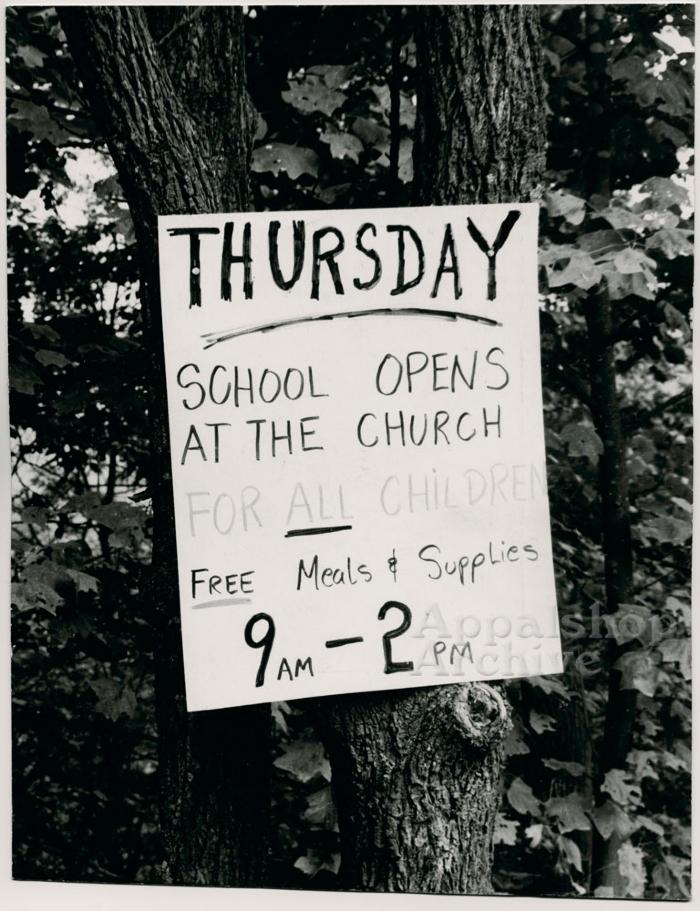 THURSDAY
SCHOOL OPENS
AT THE CHURCH
FOR ALL CHILDREN
FREE Meals & Supplies
9 AM - 2 PM
Appalshop
Archive